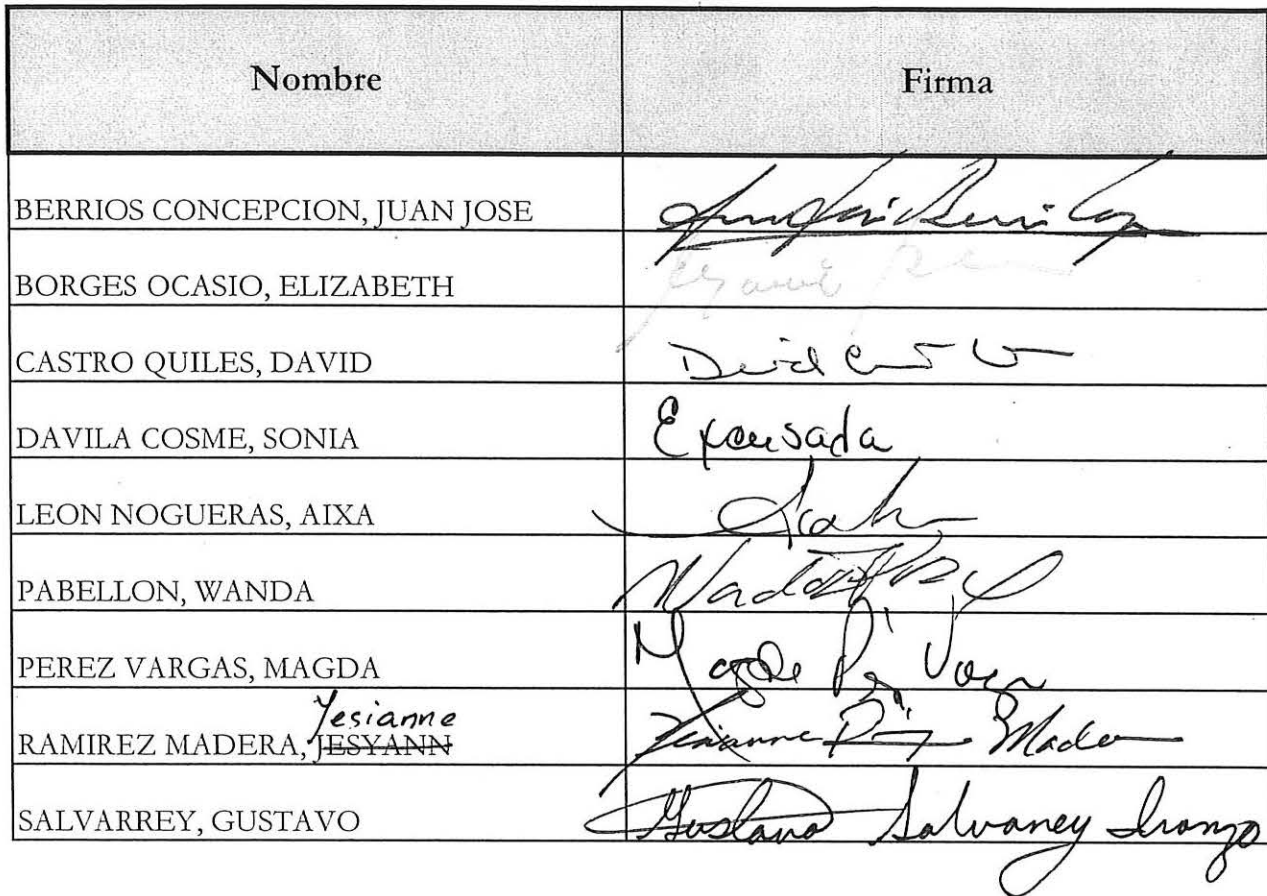 Nombre Firma
BERRIOS CONCEPCION, JUAN JOSE
BORGES OCASIO, ELIZABETH
CASTRO QUILES, DAVID David
DAVILA COSME, SONIA Excusada
LEON NOGUERAS, AIXA
PABELLON, WANDA Wanda
PEREZ VARGAS, MAGDA Magda
Yesianne
RAMIREZ MADERA, JESYANN Yesianne Madera
SALVARREY, GUSTAVO Gustavo Salvarrey Iranzo